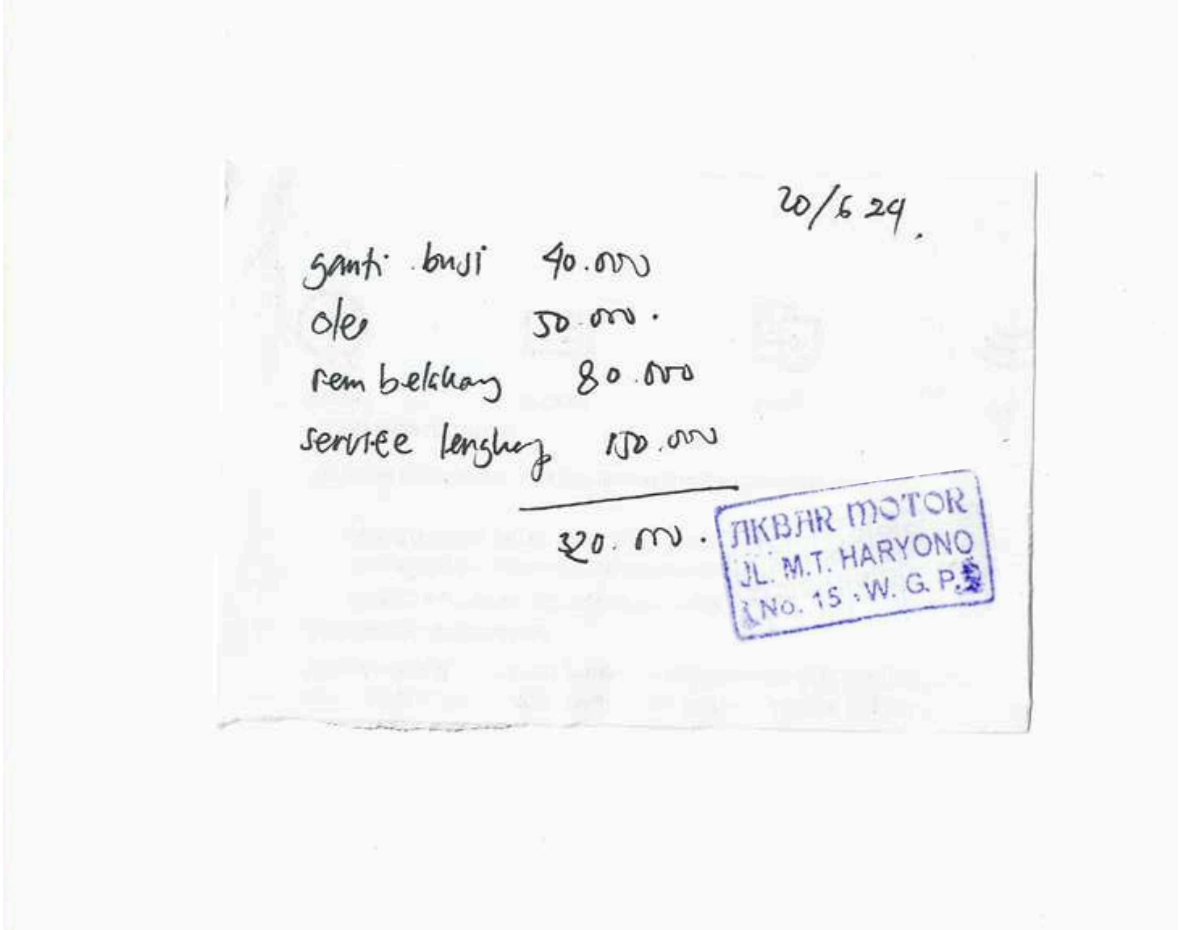 20/6 24.
ganti busi 40.000
oles 50.000.
rem belakang 80.000
service lengkap 150.000
320.000.
AKBAR MOTOR
JL. M.T. HARYONO
No. 15 . W. G. P.